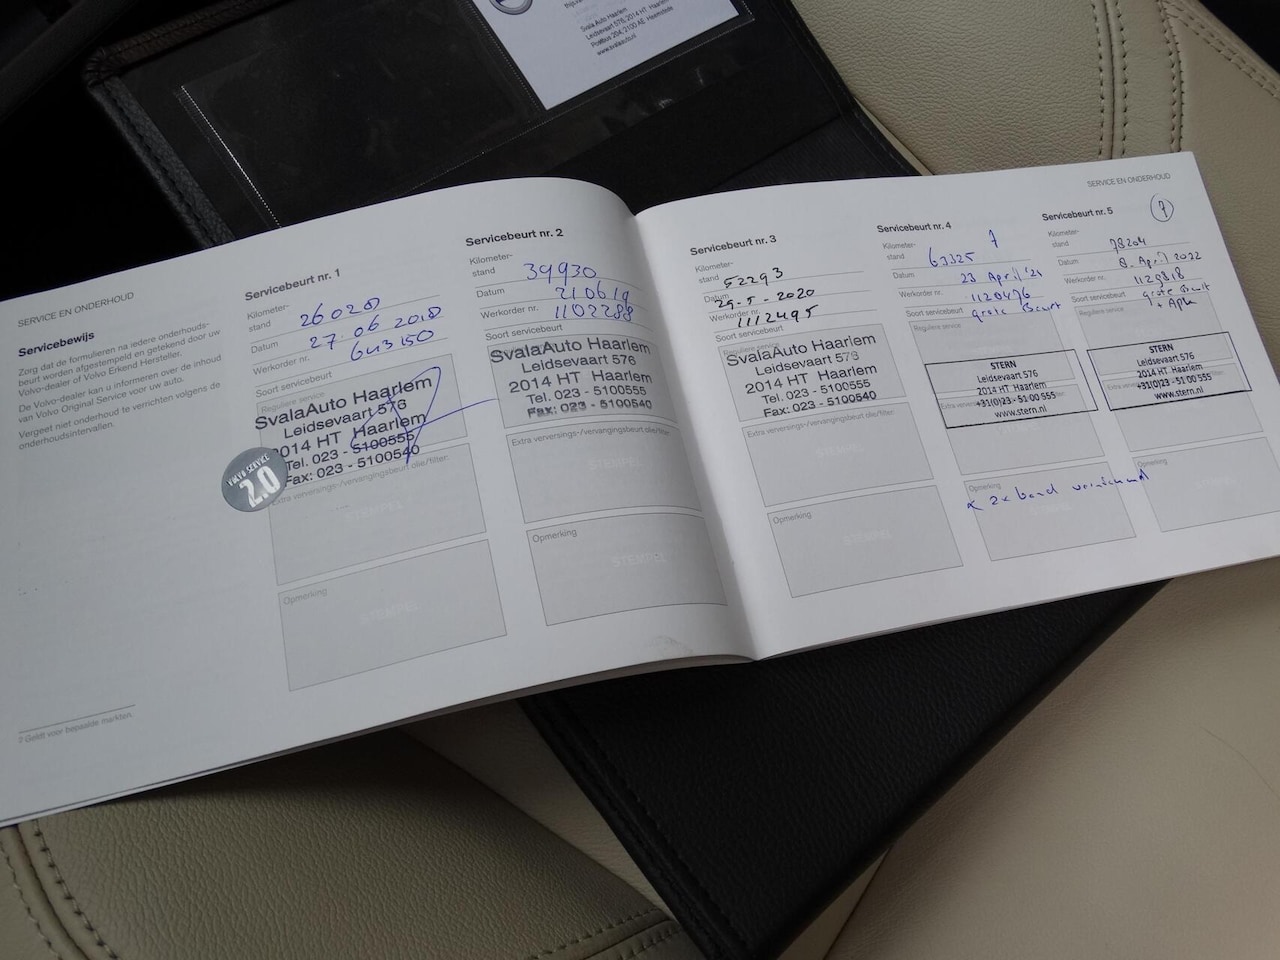 Svala Auto Haarlem
Leidsevaart 576, 2014 HT Haarlem
Postbus 294, 2100 AE Heemstede
www.svalaauto.nl
SERVICE EN ONDERHOUD
Servicebewijs
Zorg dat de formulieren na iedere onderhouds-
beurt worden afgestempeld en getekend door uw
Volvo-dealer of Volvo Erkend Hersteller.
De Volvo-dealer kan u informeren over de inhoud
van Volvo Original Service voor uw auto.
Vergeet niet onderhoud te verrichten volgens de
onderhoudsintervallen.
2 Geldt voor bepaalde markten.
Servicebeurt nr. 1
Kilometer-
stand
26028
Datum
27.06 2018
Werkorder nr.
643150
Soort servicebeurt
Reguliere service
SvalaAuto Haarlem
Leidsevaart 576
2014 HT Haarlem
Tel. 023 - 5100555
Fax: 023 - 5100540
VOLVO SERVICE
2.0
Extra verversings-/vervangingsbeurt olie/filter:
STEMPEL
Opmerking
STEMPEL
Servicebeurt nr. 2
Kilometer-
stand
39930
Datum
210619
Werkorder nr.
1102288
Soort servicebeurt
SvalaAuto Haarlem
Leidsevaart 576
2014 HT Haarlem
Tel. 023 - 5100555
Fax: 023 - 5100540
Extra verversings-/vervangingsbeurt olie/filter:
STEMPEL
Opmerking
STEMPEL
SERVICE EN ONDERHOUD
Servicebeurt nr. 3
Kilometer-
stand
52293
Datum
25-5-2020
Werkorder nr.
1112495
Soort servicebeurt
SvalaAuto Haarlem
Leidsevaart 576
2014 HT Haarlem
Tel. 023 - 5100555
Fax: 023 - 5100540
Extra verversings-/vervangingsbeurt olie/filter:
Opmerking
STEMPEL
Servicebeurt nr. 4
Kilometer-
stand
63325
Datum
23 April '21
Werkorder nr.
1120476
Soort servicebeurt
grote Beurt
Reguliere service
STERN
Leidsevaart 576
2014 HT Haarlem
+31(0)23 - 51 00 555
www.stern.nl
Opmerking
2x band
Servicebeurt nr. 5
7
Kilometer-
stand
78204
Datum
8 April 2022
Werkorder nr.
1129818
Soort servicebeurt
grote Beurt
+ Apk
Reguliere service
STERN
Leidsevaart 576
2014 HT Haarlem
+31(0)23 - 51 00 555
www.stern.nl
Opmerking